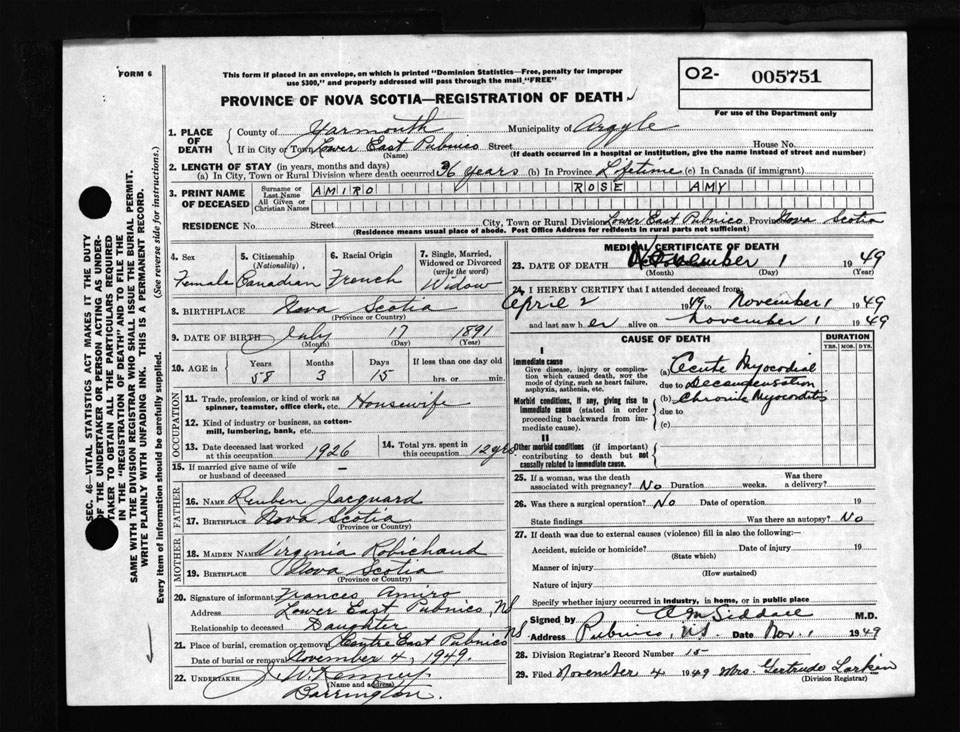 FORM 6
This form if placed in an envelope, on which is printed "Dominion Statistics—Free, penalty for improper
use $300," and properly addressed will pass through the mail "FREE"
PROVINCE OF NOVA SCOTIA—REGISTRATION OF DEATH
O2- 005751
For use of the Department only
SEC. 46— VITAL STATISTICS ACT MAKES IT THE DUTY
OF THE UNDERTAKER OR PERSON ACTING AS UNDER-
TAKER TO OBTAIN ALL THE PARTICULARS REQUIRED
IN THE "REGISTRATION OF DEATH" AND TO FILE THE
SAME WITH THE DIVISION REGISTRAR WHO SHALL ISSUE THE BURIAL PERMIT.
WRITE PLAINLY WITH UNFADING INK. THIS IS A PERMANENT RECORD.
Every item of information should be carefully supplied. (See reverse side for instructions.)
1. PLACE OF DEATH County of Yarmouth Municipality of Argyle
If in City or Town Lower East Pubnico Street House No.
(Name) (If death occurred in a hospital or institution, give the name instead of street and number)
2. LENGTH OF STAY (in years, months and days)
(a) In City, Town or Rural Division where death occurred 36 years (b) In Province Lifetime (c) In Canada (if immigrant)
3. PRINT NAME OF DECEASED Surname or Last Name AMIRO ROSE AMY
All Given or Christian Names
RESIDENCE No. Street City, Town or Rural Division Lower East Pubnico Province Nova Scotia
(Residence means usual place of abode. Post Office Address for residents in rural parts not sufficient)
4. Sex Female
5. Citizenship (Nationality) Canadian
6. Racial Origin French
7. Single, Married, Widowed or Divorced (write the word) Widow
8. BIRTHPLACE Nova Scotia
(Province or Country)
9. DATE OF BIRTH July 17 1891
(Month) (Day) (Year)
10. AGE in Years 58 Months 3 Days 15 If less than one day old hrs. or min.
OCCUPATION
11. Trade, profession, or kind of work as
spinner, teamster, office clerk, etc. Housewife
12. Kind of industry or business, as cotton-
mill, lumbering, bank, etc.
13. Date deceased last worked at this occupation 1926 14. Total yrs. spent in this occupation 12 yrs
15. If married give name of wife
or husband of deceased —
FATHER
16. NAME Reuben Jacquard
17. BIRTHPLACE Nova Scotia
(Province or Country)
MOTHER
18. MAIDEN NAME Virginia Robichaud
19. BIRTHPLACE Nova Scotia
(Province or Country)
20. Signature of informant Frances Amiro
Address Lower East Pubnico, NS
Relationship to deceased Daughter
21. Place of burial, cremation or removal Centre East Pubnico NS
Date of burial or removal November 4, 1949.
22. UNDERTAKER J. W. Kenney
(Name and address)
Barrington.
MEDICAL CERTIFICATE OF DEATH
23. DATE OF DEATH November 1 1949
(Month) (Day) (Year)
24. I HEREBY CERTIFY that I attended deceased from
April 2 1949 to November 1 1949
and last saw her alive on November 1 1949
CAUSE OF DEATH
DURATION
YRS. MOS. DYS.
I
Immediate cause
Give disease, injury or complica-
tion which caused death, not the
mode of dying, such as heart failure,
asphyxia, asthenia, etc.
(a) Acute Myocodial
due to Decompensation
Morbid conditions, if any, giving rise to
immediate cause (stated in order
proceeding backwards from im-
mediate cause).
(b) Chronic Myocoditis
due to
(c)
II
Other morbid conditions (if important)
contributing to death but not
causally related to immediate cause.
25. If a woman, was the death
associated with pregnancy? No Duration weeks. Was there a delivery?
26. Was there a surgical operation? No Date of operation 19
State findings Was there an autopsy? No
27. If death was due to external causes (violence) fill in also the following:—
Accident, suicide or homicide? Date of injury 19
(State which)
Manner of injury
(How sustained)
Nature of injury
Specify whether injury occurred in industry, in home, or in public place
Signed by Siddall M.D.
Address Pubnico, N.S. Date Nov. 1 1949
28. Division Registrar's Record Number 15
29. Filed November 4 1949 Mrs. Gertrude Larkin
(Division Registrar)